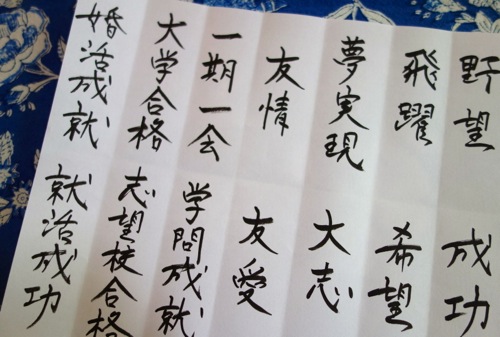 野望
飛躍
夢実現
友情
一期一会
大学合格
婚活成就
成功
希望
大志
友愛
学問成就
志望校合格
就活成功